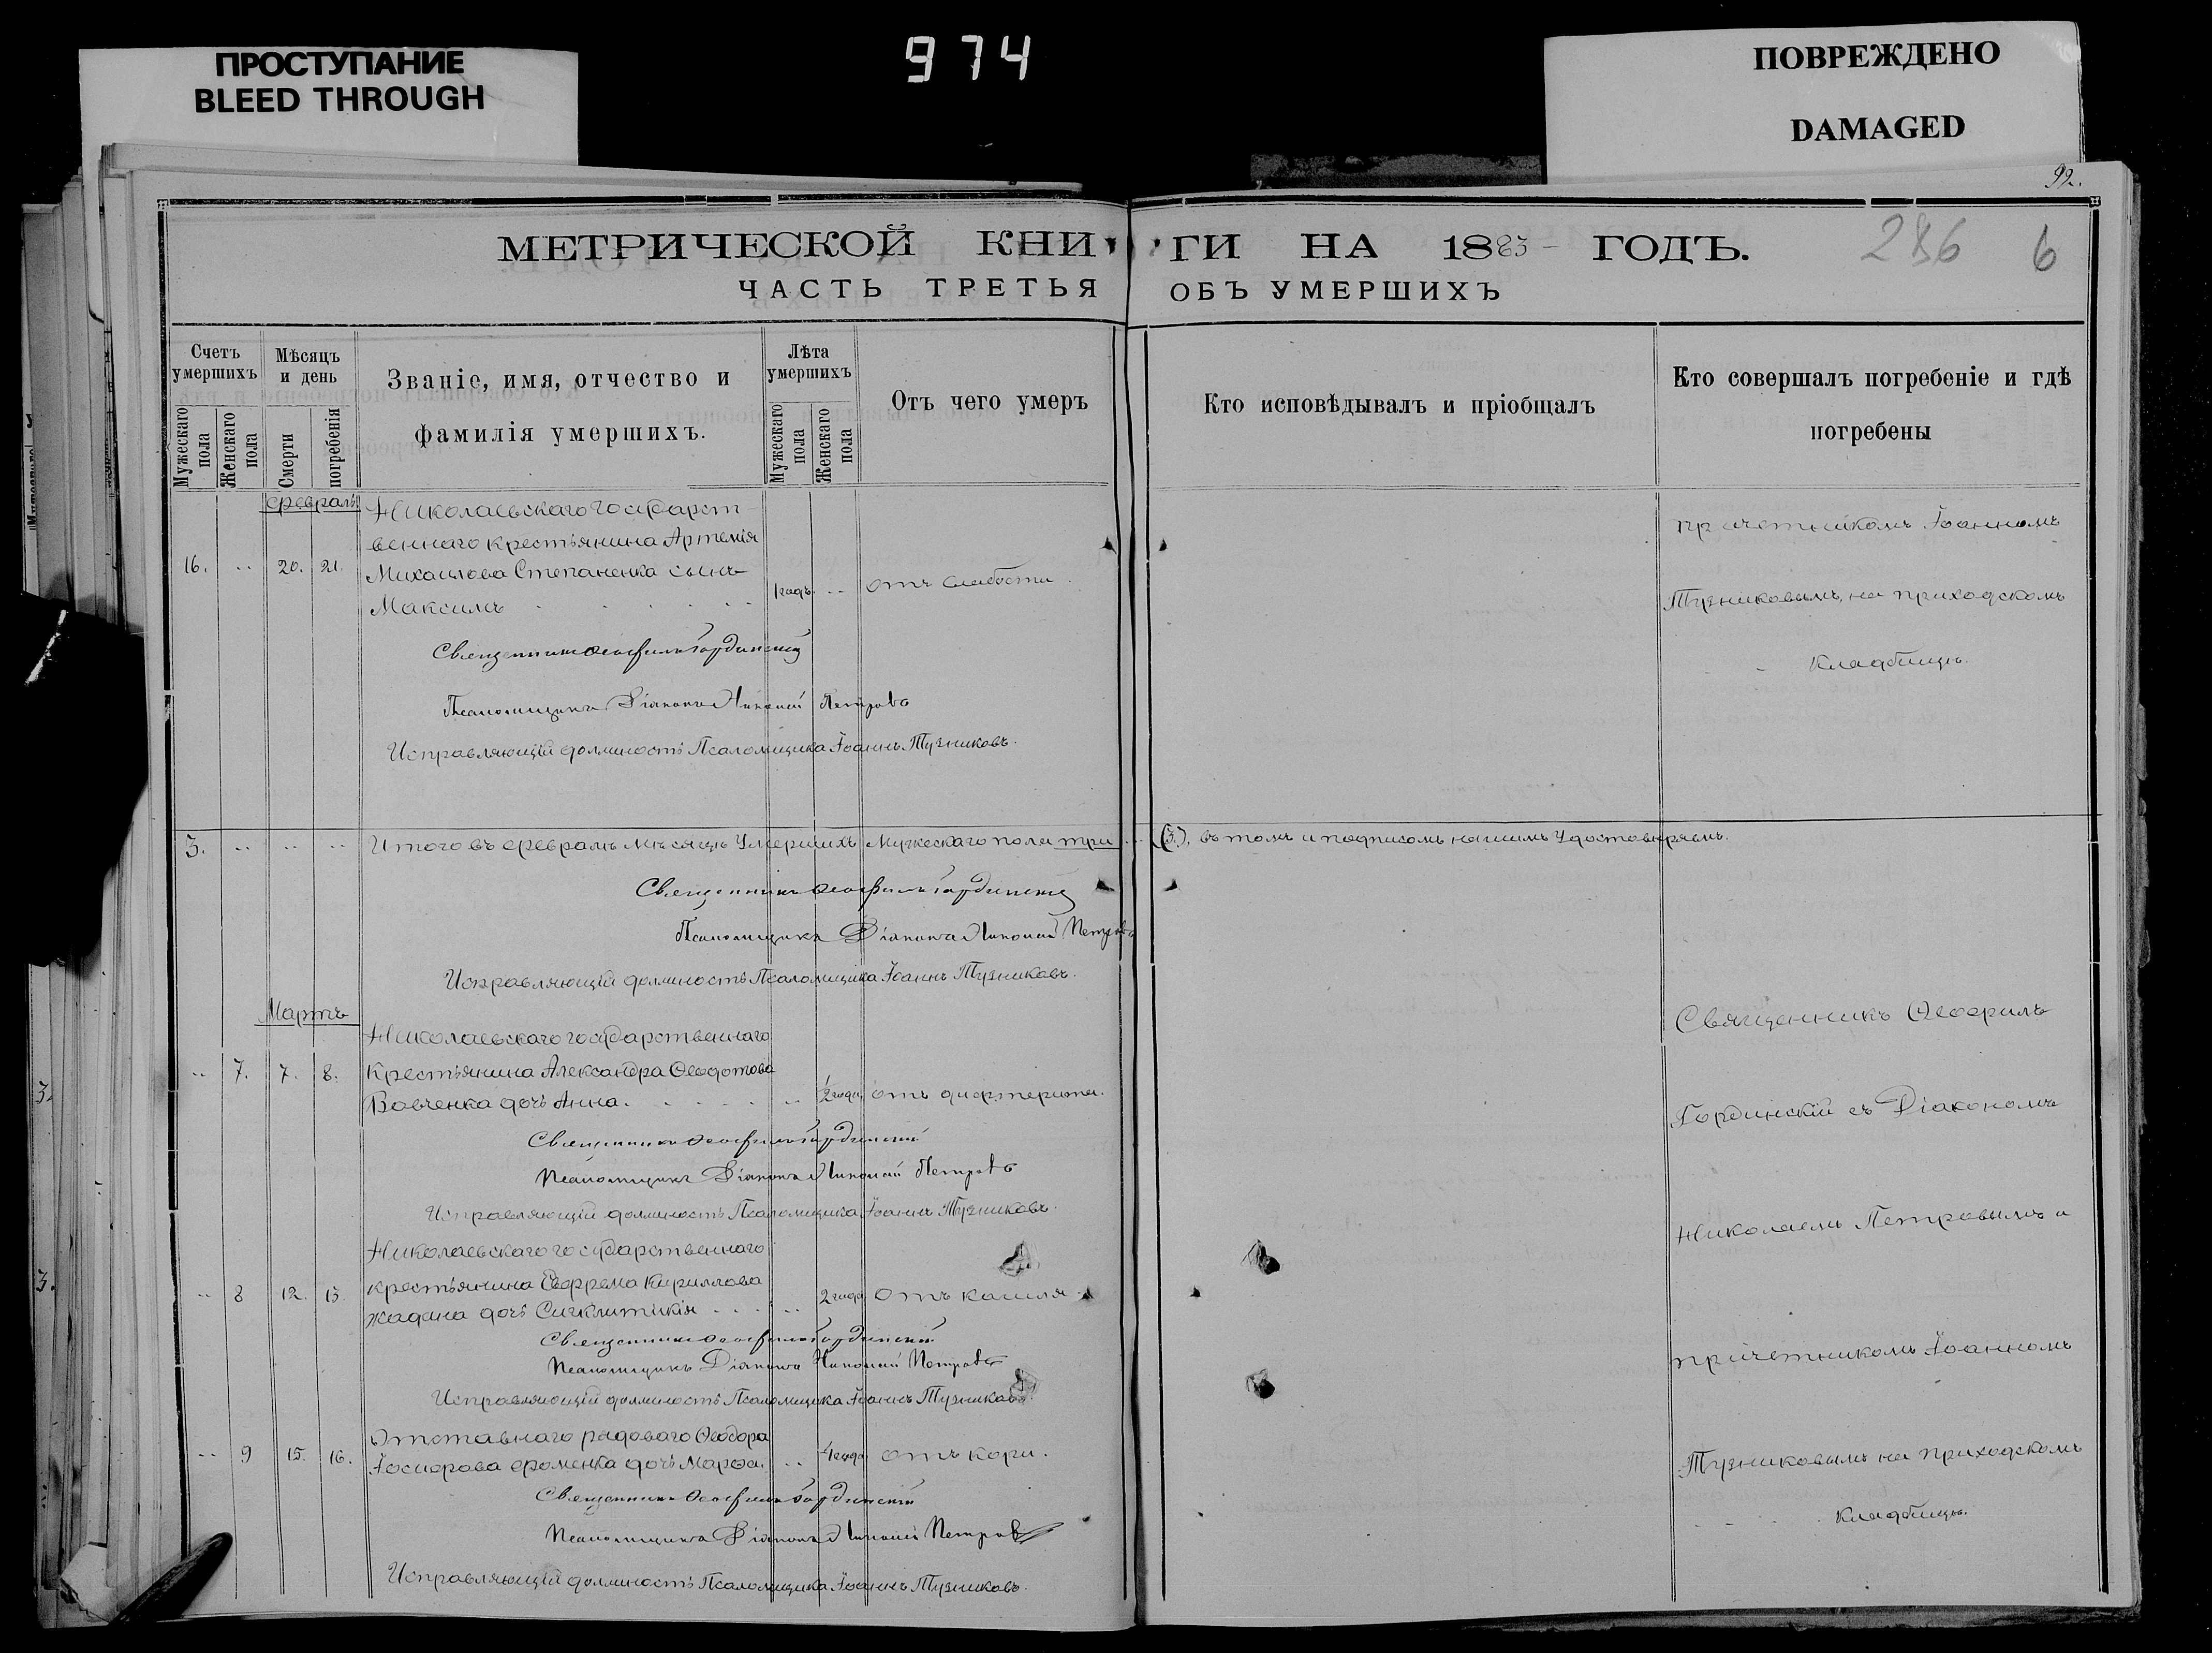 ПРОСТУПАНИЕ
BLEED THROUGH
974
ПОВРЕЖДЕНО
DAMAGED
92.
МЕТРИЧЕСКОЙ КНИГИ НА 1883 ГОДЪ.
286 6
ЧАСТЬ ТРЕТЬЯ ОБЪ УМЕРШИХЪ
Счетъ умершихъ
Мужескаго пола
Женскаго пола
Мѣсяцъ и день
Смерти
погребенія
Званіе, имя, отчество и
фамилія умершихъ.
Лѣта умершихъ
Мужескаго пола
Женскаго пола
Отъ чего умеръ
Кто исповѣдывалъ и пріобщалъ
Кто совершалъ погребеніе и гдѣ
погребены
Февраль
Николаевскаго государст-
веннаго крестьянина Артемія
16. 20. 21. Михаилова Степаненка сынъ
Максимъ 1 годъ отъ слабости.
причетникомъ Іоанномъ
Тузниковымъ, на приходскомъ
кладбищѣ.
Священникъ Ѳеофилъ Гординскій
Псаломщикъ Діаконъ Николай Петровъ
Исправляющій должность Псаломщика Іоаннъ Тузниковъ.
3. Итого въ Февралѣ мѣсяцѣ умершихъ Мужескаго пола три (3), въ томъ и подписомъ нашимъ удостовѣряемъ.
Священникъ Ѳеофилъ Гординскій
Псаломщикъ Діаконъ Николай Петровъ
Исправляющій должность Псаломщика Іоаннъ Тузниковъ.
Мартъ
Николаевскаго государственнаго
7. 7. 8. Крестьянина Александра Ѳеодотова
Вовченка дочь Анна. ½ года отъ дифтерита.
Священникъ Ѳеофилъ Гординскій
Псаломщикъ Діаконъ Николай Петровъ
Исправляющій должность Псаломщика Іоаннъ Тузниковъ.
Николаевскаго государственнаго
8 12. 13. крестьянина Евфрема Кириллова
Жадана дочь Сигклитикія 2 года Отъ кашля
Священникъ Ѳеофилъ Гординскій
Псаломщикъ Діаконъ Николай Петровъ
Исправляющій должность Псаломщика Іоаннъ Тузниковъ.
Отставнаго рядоваго Ѳеодора
9 15. 16. Іосифова Фоменка дочь Марѳа. 4 года отъ кори.
Священникъ Ѳеофилъ Гординскій
Псаломщикъ Діаконъ Николай Петровъ
Исправляющій должность Псаломщика Іоаннъ Тузниковъ.
Священникъ Ѳеофилъ
Гординскій съ Діакономъ
Николаемъ Петровымъ и
причетникомъ Іоанномъ
Тузниковымъ на приходскомъ
кладбищѣ.
3.
3.